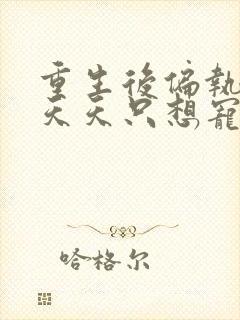 重生後偏執
天天只想寵
哈格尔